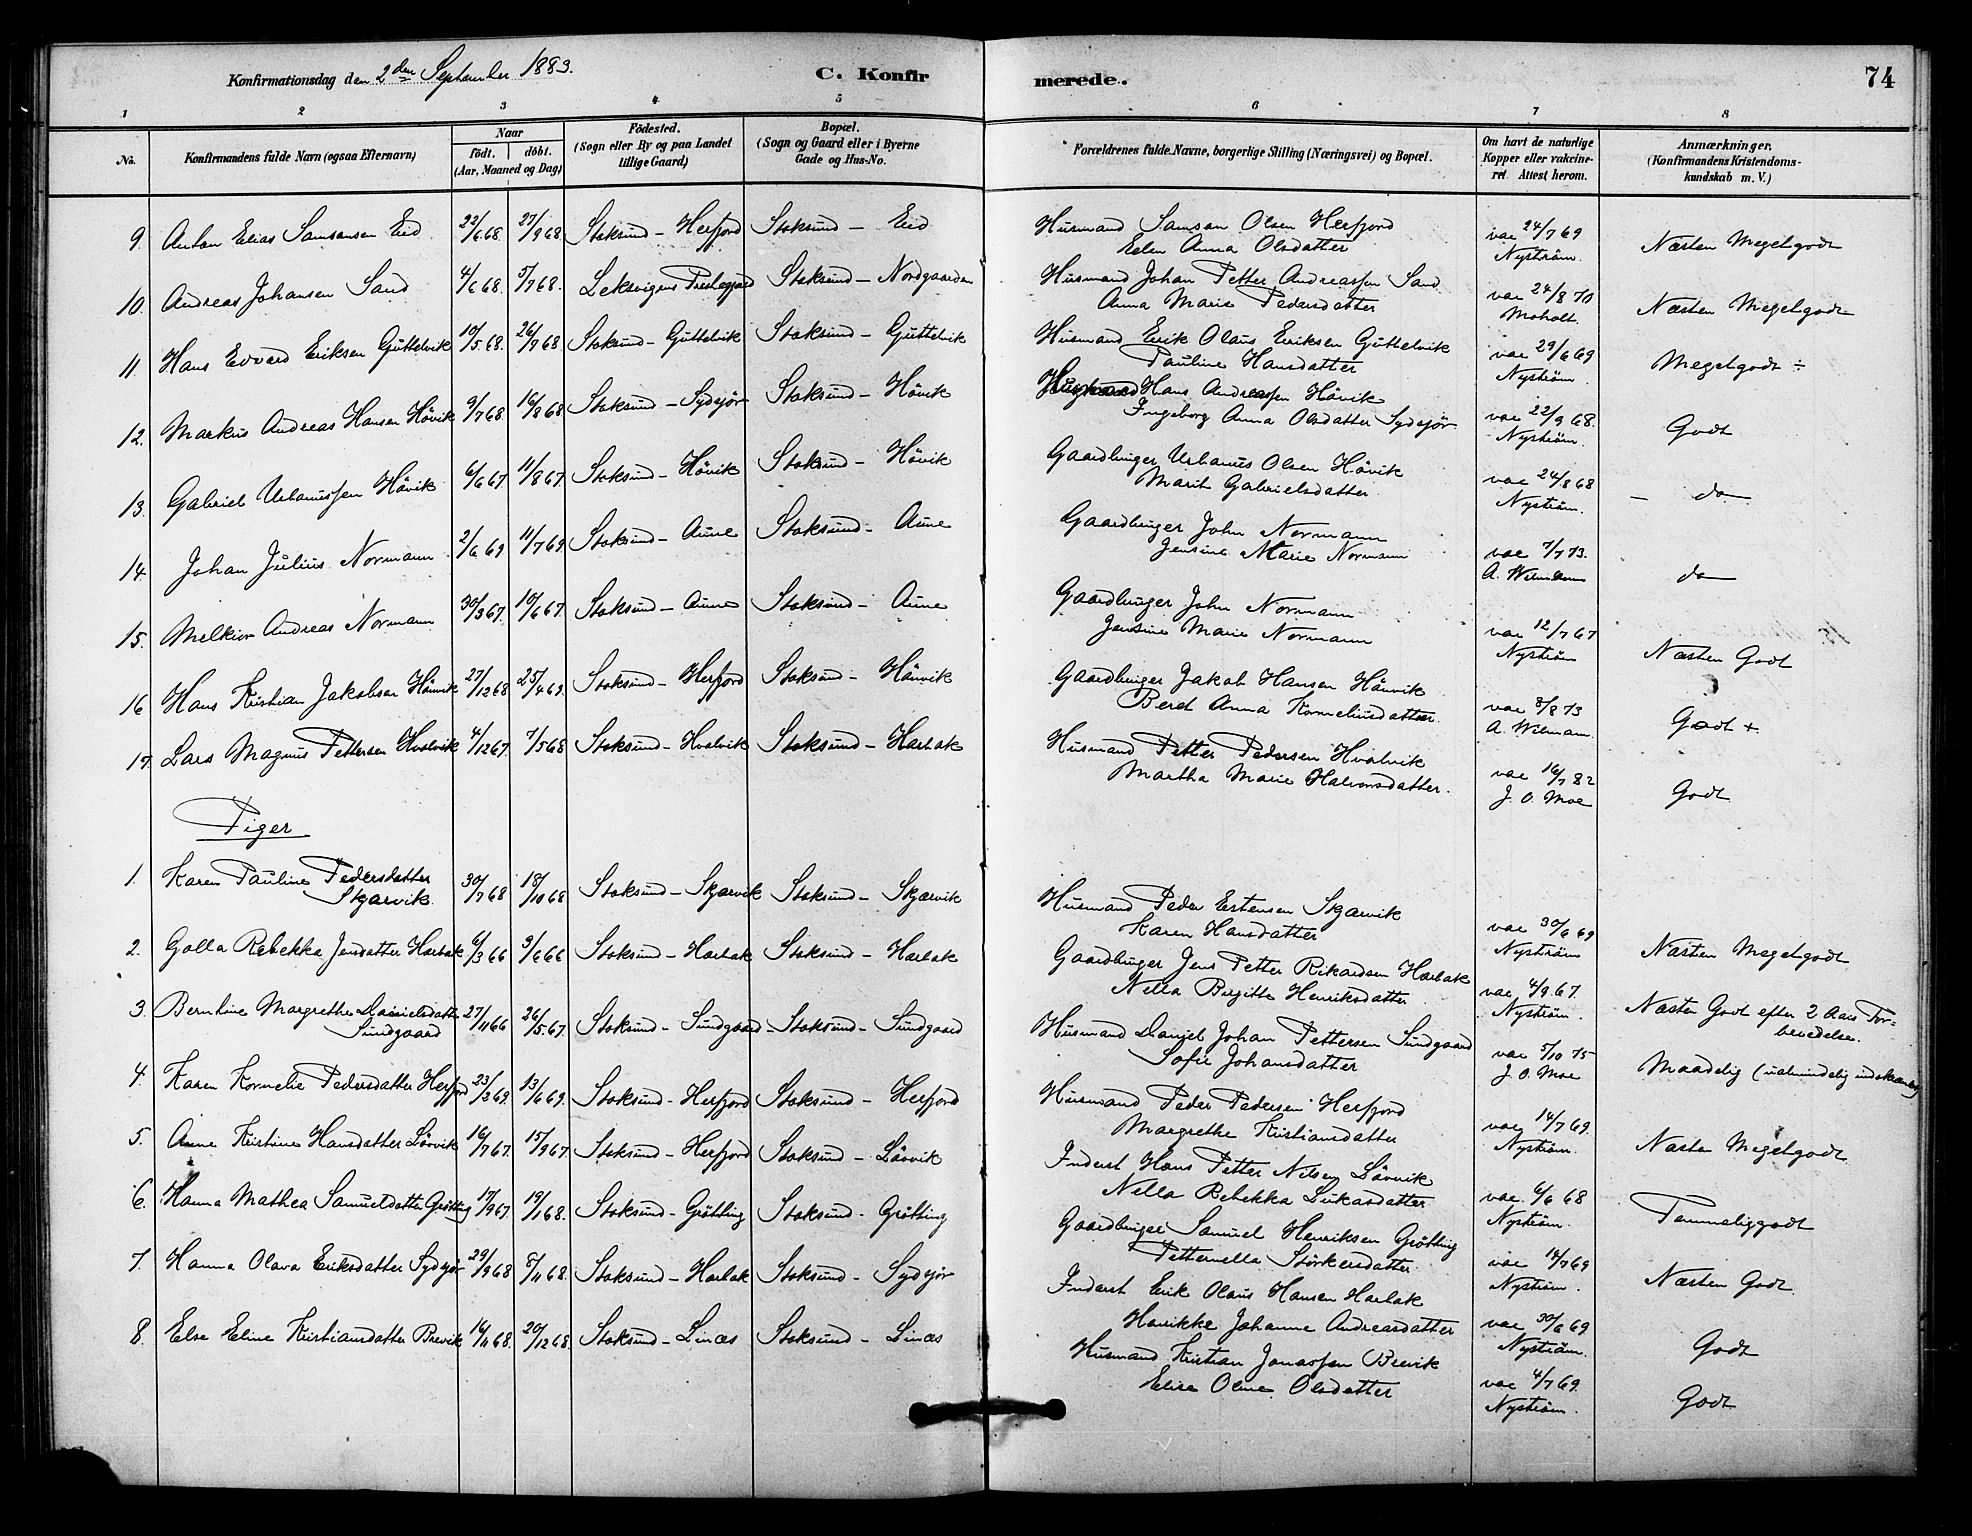 Konfirmationsdag den 2den September 1883.
C. Konfirmerede.
74
1 2 3 4 5 6 7 8
No. Konfirmandens fulde Navn (ogsaa Efternavn) Naar født, døbt. (Aar, Maaned og Dag) Fødested. (Sogn eller By og paa Landet tillige Gaard) Bopæl. (Sogn og Gaard eller i Byerne Gade og Hus-No. Forældrenes fulde Navne, borgerlige Stilling (Næringsvei) og Bopæl. Om havt de naturlige Kopper eller vaccineret. Attest herom. Anmærkninger. (Konfirmandens Kristendomskundskab m. V.)
9. Anton Elias Samsonsen Eid 22/6 68. 27/9 68. Stoksund - Herfjord Stoksund - Eid Husmand Samson Olsen Herfjord
Elen Anna Olsdatter vac 24/7 69 Nyström. Næsten Megetgodt
10. Andreas Johansen Sand 4/6 68. 5/7 68. Leksvigens Prestegjæld Stoksund - Nordgaarden Husmand Johan Petter Andreassen Sand
Anna Marie Pedersdatter vac 24/8 70 Moholt. Næsten Megetgodt
11. Hans Edvard Eriksen Guttelvik 10/5 68. 26/9 68 Stoksund - Guttelvik Stoksund - Guttelvik Husmand Erik Olaus Eriksen Guttelvik
Pauline Hansdatter vac 29/6 69 Nyström. Megetgodt ÷
12. Markus Andreas Hansen Hövik 9/7 68. 16/8 68 Stoksund - Sydsjör Stoksund - Hövik Hans Andreassen Hövik
Ingeborg Anna Olsdatter Sydsjör vac 22/9 68. Nyström. Godt
13. Gabriel Urbanussen Hövik 6/6 67. 11/8 67 Stoksund - Hövik Stoksund - Hövik Gaardbruger Urbanus Olsen Hövik
Marit Gabrielsdatter. vac 24/8 68 Nyström. - do -
14. Johan Julius Normann 2/6 69 11/7 69. Stoksund - Aune Stoksund - Aune Gaardbruger John Normann
Jensine Marie Normann vac 7/7 73. A. Wilmann do
15. Melkior Andreas Normann 30/3 67. 10/6 67. Stoksund - Aune Stoksund - Aune Gaardbruger John Normann
Jensine Marie Normann vac 12/7 67 Nyström Næsten Godt
16 Hans Kristian Jakobsen Hårvik 27/12 68 25/4 69. Stoksund - Herfjord Stoksund - Hårvik Gaardbruger Jakob Hansen Hårvik
Beret Anna Korneliusdatter. vac 8/8 73 A. Wilmann. Godt +
17. Lars Magnus Pettersen Hvalvik 4/12 67. 7/5 68 Stoksund - Hvalvik Stoksund - Harbak Husmand Petter Pedersen Hvalvik
Martha Marie Halvorsdatter. vac 16/7 82 J. O. Moe Godt
Piger
1. Karen Pauline Pedersdatter Skjærvik. 30/7 68 18/10 68 Stoksund - Skjærvik Stoksund - Skjærvik Husmand Peder Estensen Skjærvik
Karen Hansdatter vac 30/6 69 Nyström Næsten Megetgodt
2. Golla Rebekka Jensdatter Harbak 6/3 66 3/6 66 Stoksund - Harbak Stoksund - Harbak Gaardbruger Jens Petter Rikardsen Harbak
Nella Birgitte Henriksdatter. vac 4/9 67. Nyström. Næsten Godt efter 2 Aars Forberedelse.
3. Berntine Margrethe Danielsdatter Sundgaard 27/11 66 26/5 67. Stoksund - Sundgaard Stoksund - Sundgaard Husmand Daniel Johan Pettersen Sundgaard
Sofie Johansdatter vac 5/10 75 J. O. Moe Maadelig (ualmindelig indskrænket)
4. Karen Kornelie Pedersdatter Herfjord 23/3 69. 13/6 69. Stoksund - Herfjord Stoksund - Herfjord Husmand Peder Pedersen Herfjord
Margrethe Kristiansdatter vac 14/7 69. Nyström. Næsten Megetgodt
5. Anne Kristine Hansdatter Lövvik 16/7 67. 15/9 67 Stoksund - Herfjord Stoksund - Lövvik Inderst Hans Petter Nilsen Lövvik
Nella Rebekka Lukasdatter vac 6/6 68 Nyström. Temmeliggodt
6. Hanna Mathea Samuelsdatter Grötting 17/9 67. 19/1 68. Stoksund - Grötting Stoksund - Grötting Gaardbruger Samuel Henriksen Grötting
Petternella Störkersdatter. vac 14/7 69 Nyström. Næsten Godt.
7. Hanna Olava Eriksdatter Sydsjör 29/9 68 8/11 68. Stoksund - Harbak Stoksund - Sydsjör Inderst Erik Olaus Hansen Harbak
Henrikke Johanne Andreasdatter vac 30/6 69 Nyström. Godt
8. Else Eline Kristiansdatter Brevik 16/11 68. 20/12 68. Stoksund - Linæs Stoksund - Linæs Husmand Kristian Jonassen Brevik
Elise Oline Olsdatter vac 4/7 69. Nyström. Godt